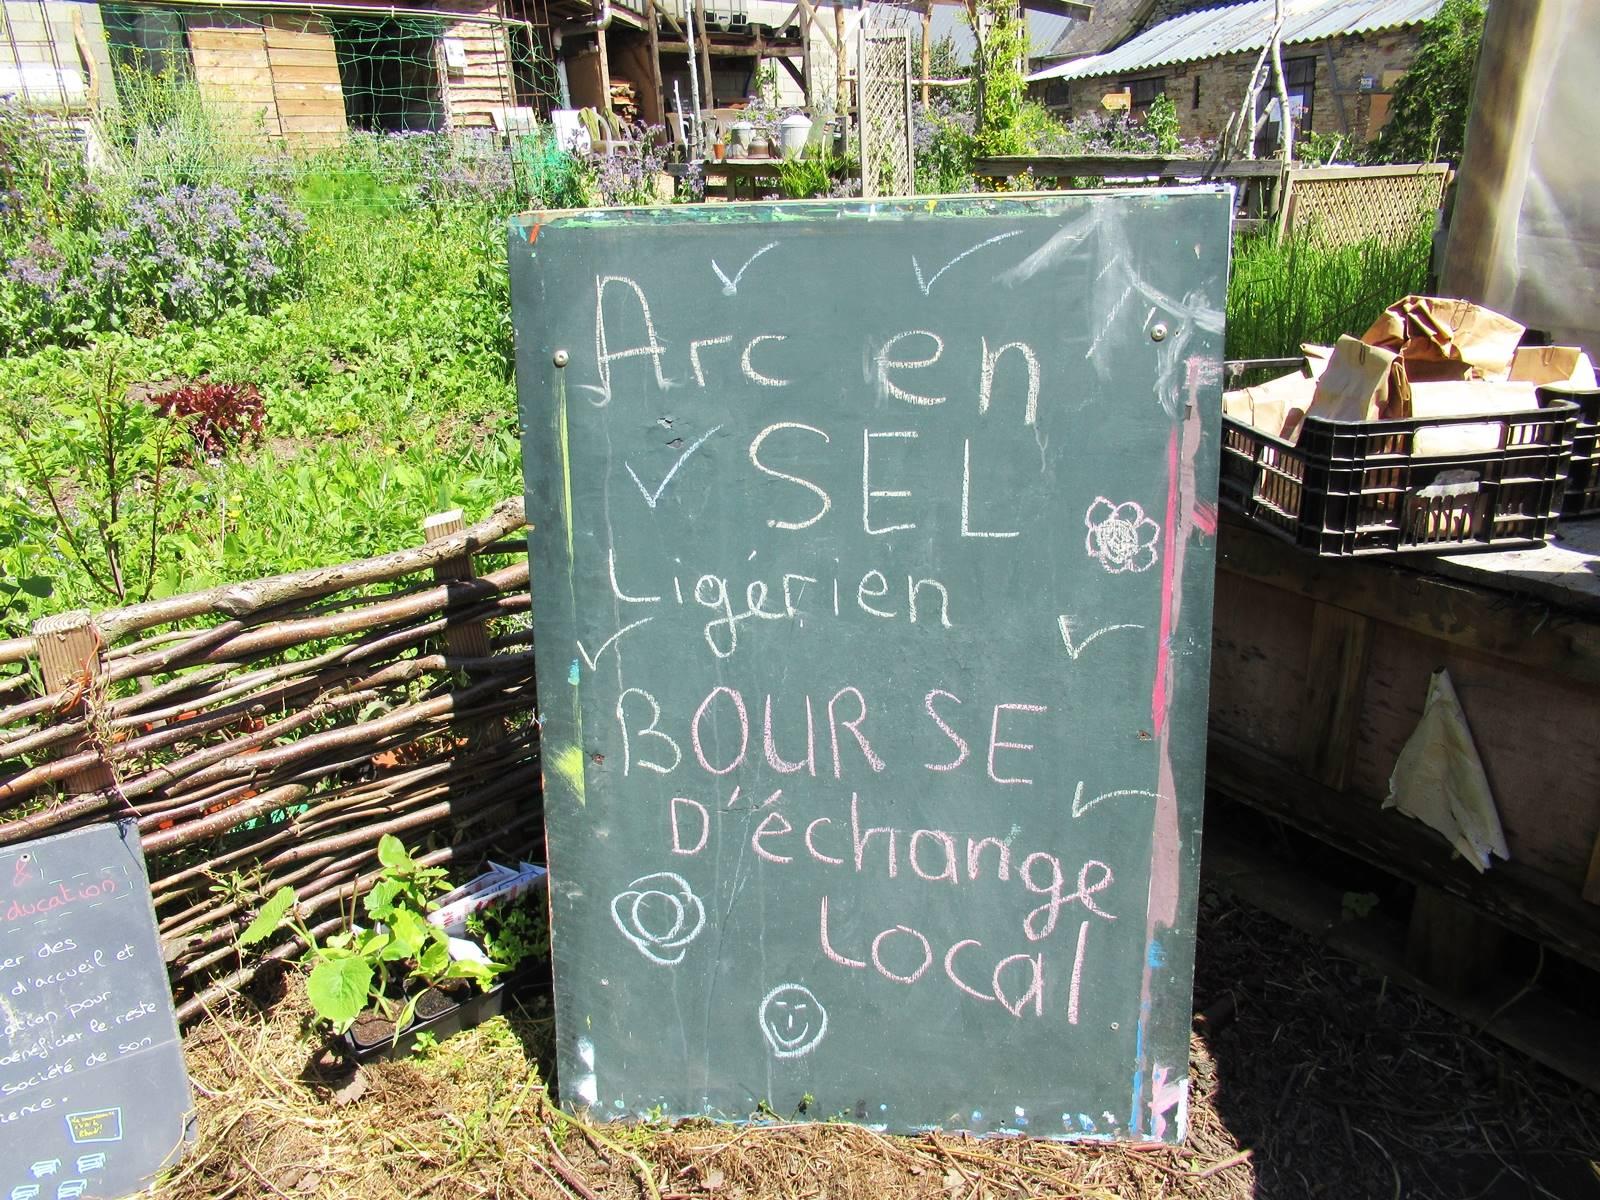 Arc en
SEL
Ligérien
BOURSE
D'échange
Local
&
Education
ser des
d'accueil et
ation pour
bénéficier le reste
société de son
ience.